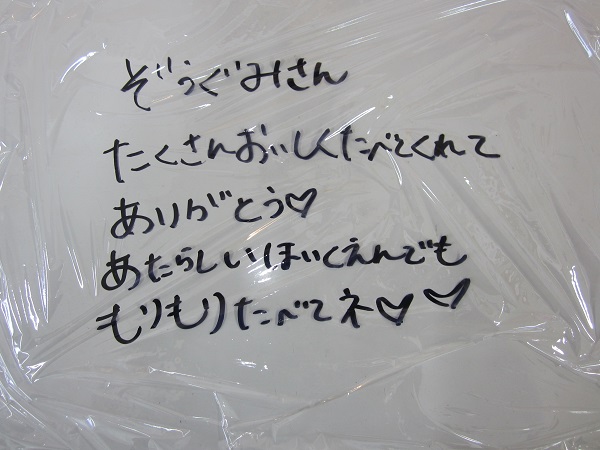 ぞうぐみさん
たくさんおいしくたべてくれて
ありがとう♡
あたらしいほいくえんでも
もりもりたべてネ♡♡